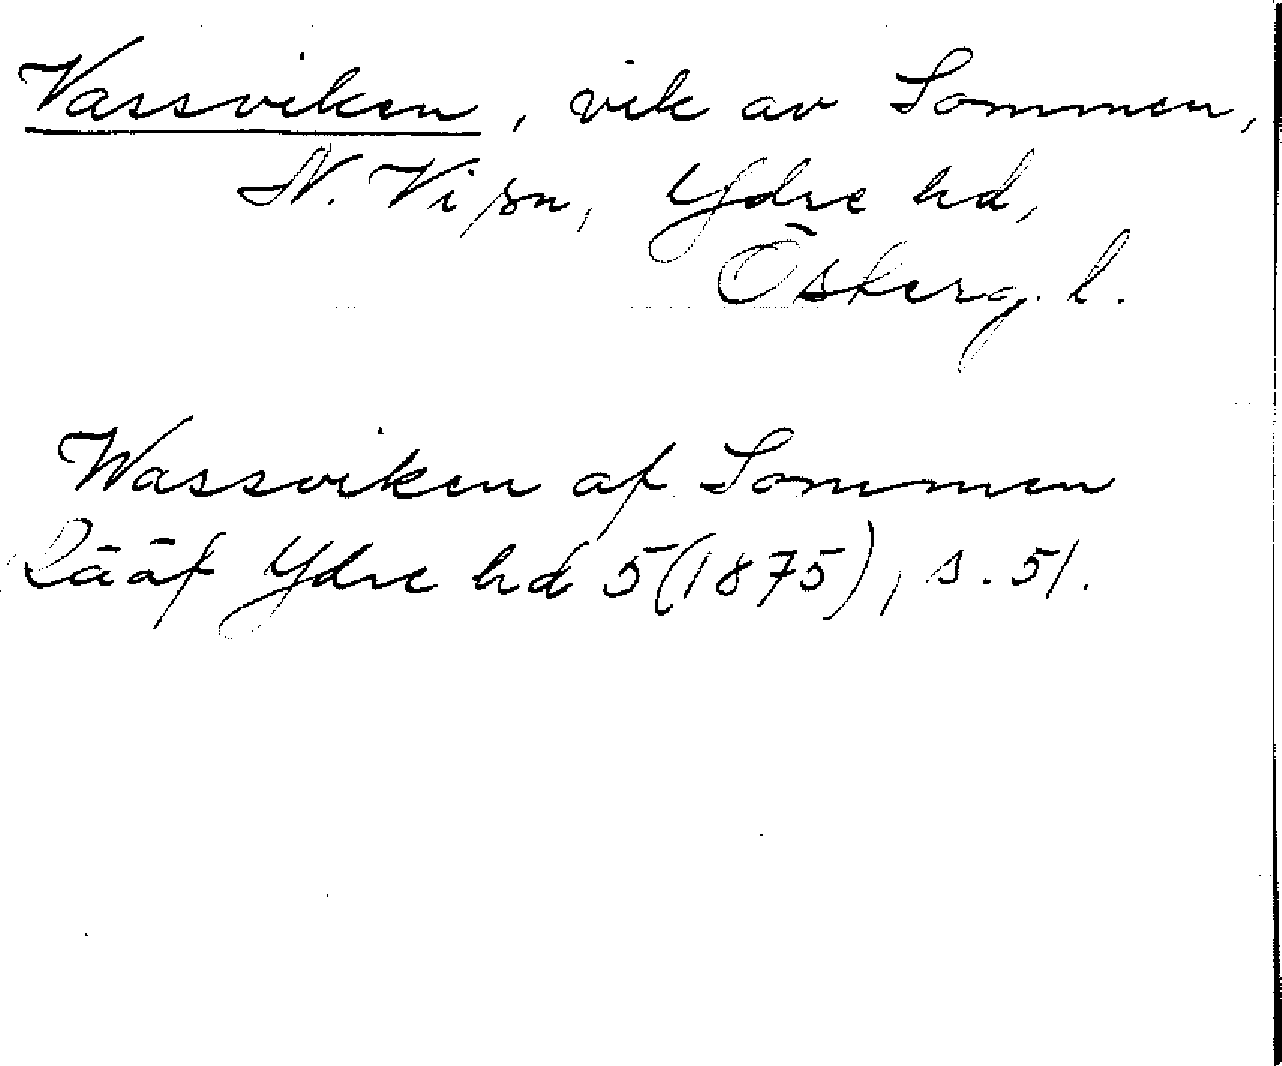 Vassviken, vik av Sommen,
N. Vi sn, Ydre hd,
Österg. l.
Wassviken af Sommen
Lääf Ydre hd 5(1875), s. 51.